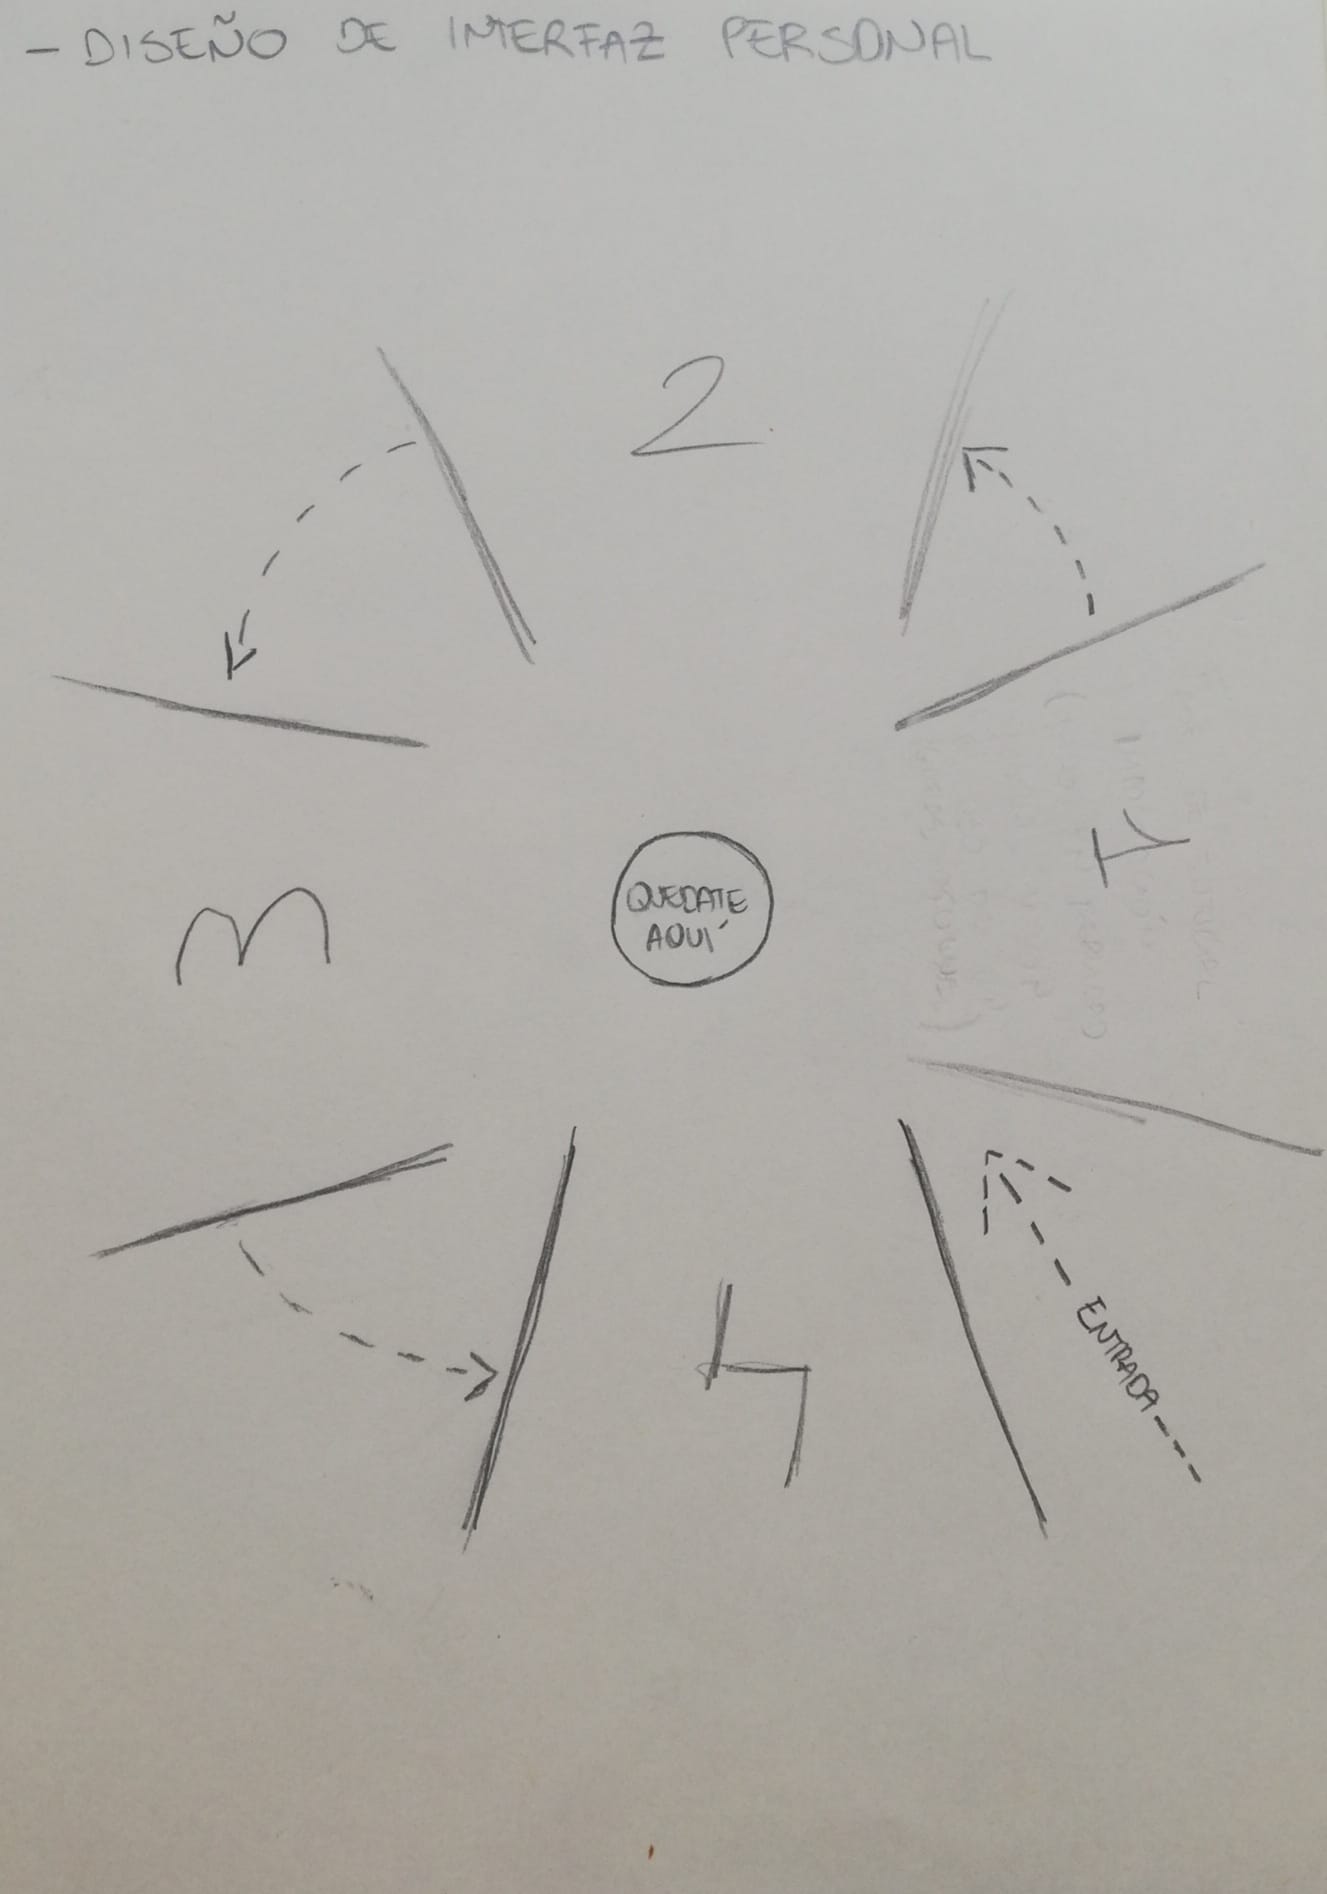 - DISEÑO DE INTERFAZ PERSONAL
2
1
3
QUEDATE
AQUÍ
4
ENTRADA